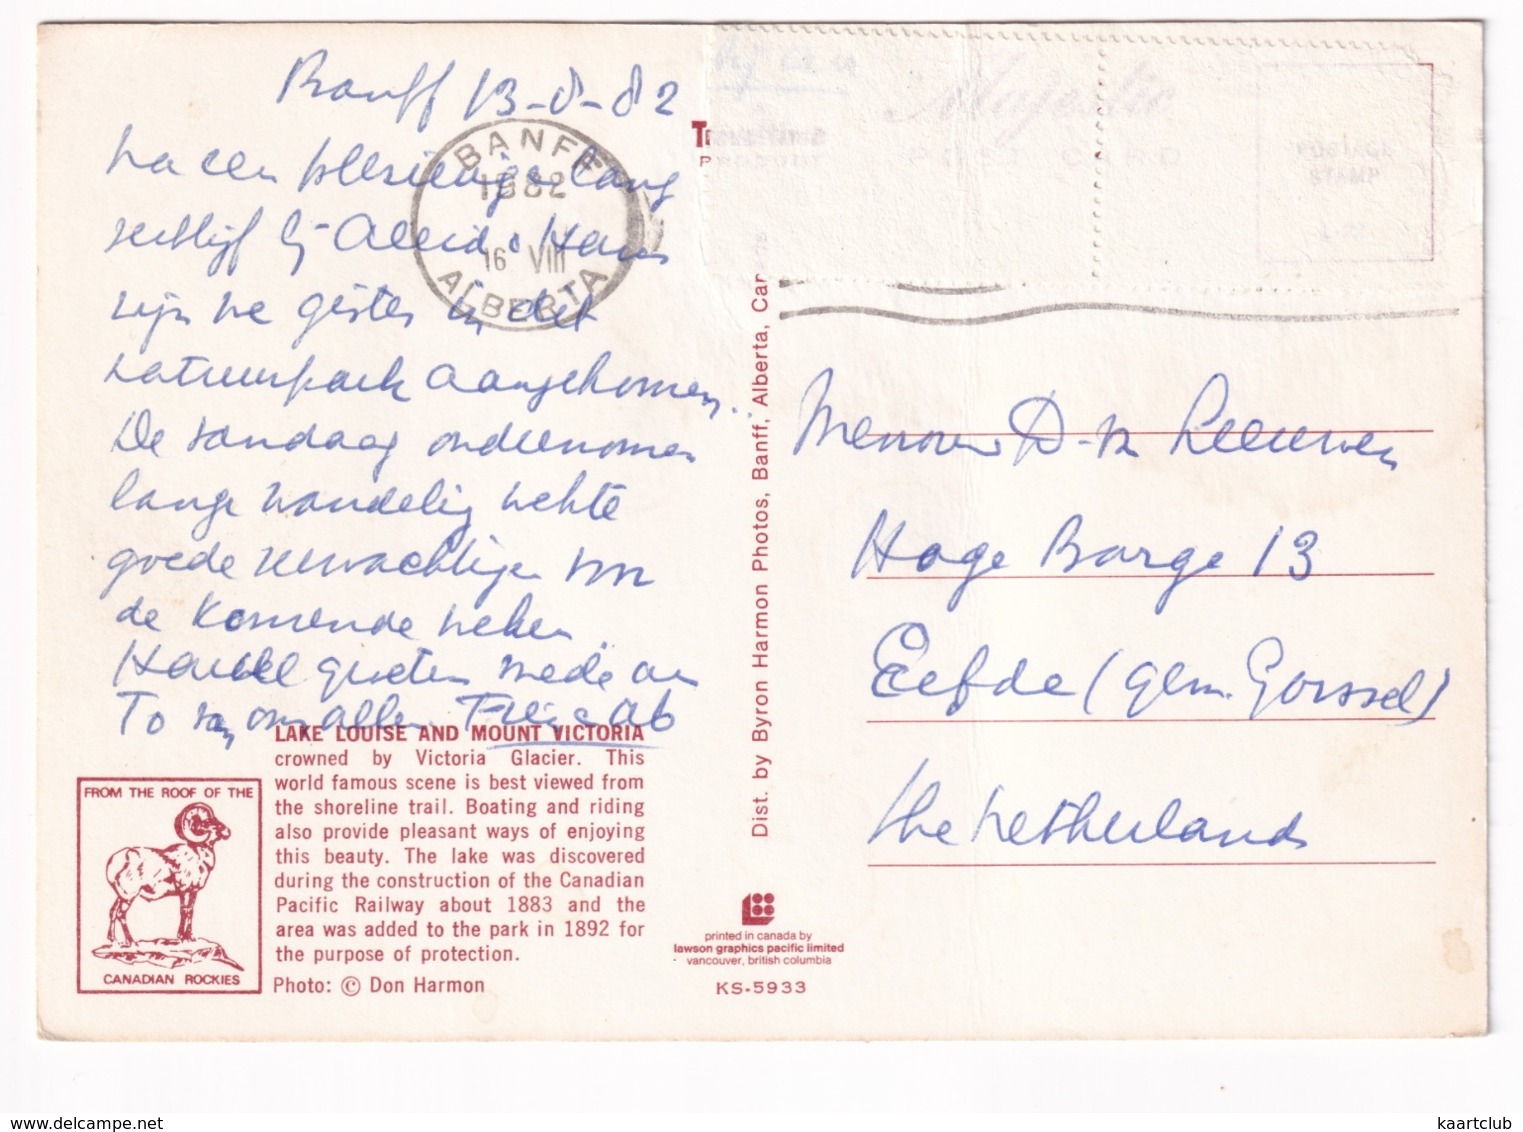 Banff 13-8-82
na een plezierige lang
verblijf bij Aleid & Hans
zijn we gisten in het
natuurpark aangekomen..
De vandaag ondernomen
lange wandeling wekte
goede verwachtingen voor
de komende weken.
Hartel groeten mede aan
To van ons allen
BANFF
1982
16 VIII
ALBERTA
LAKE LOUISE AND MOUNT VICTORIA
crowned by Victoria Glacier. This
world famous scene is best viewed from
the shoreline trail. Boating and riding
also provide pleasant ways of enjoying
this beauty. The lake was discovered
during the construction of the Canadian
Pacific Railway about 1883 and the
area was added to the park in 1892 for
the purpose of protection.
Photo: © Don Harmon
FROM THE ROOF OF THE
CANADIAN ROCKIES
Dist. by Byron Harmon Photos, Banff, Alberta, Can
printed in canada by
lawson graphics pacific limited
vancouver, british columbia
KS-5933
Majestic
POST CARD
Mevrouw D. v. Leeuwen
Hoge Barge 13
Eefde (gem. Gorssel)
the Netherlands
kaartclub